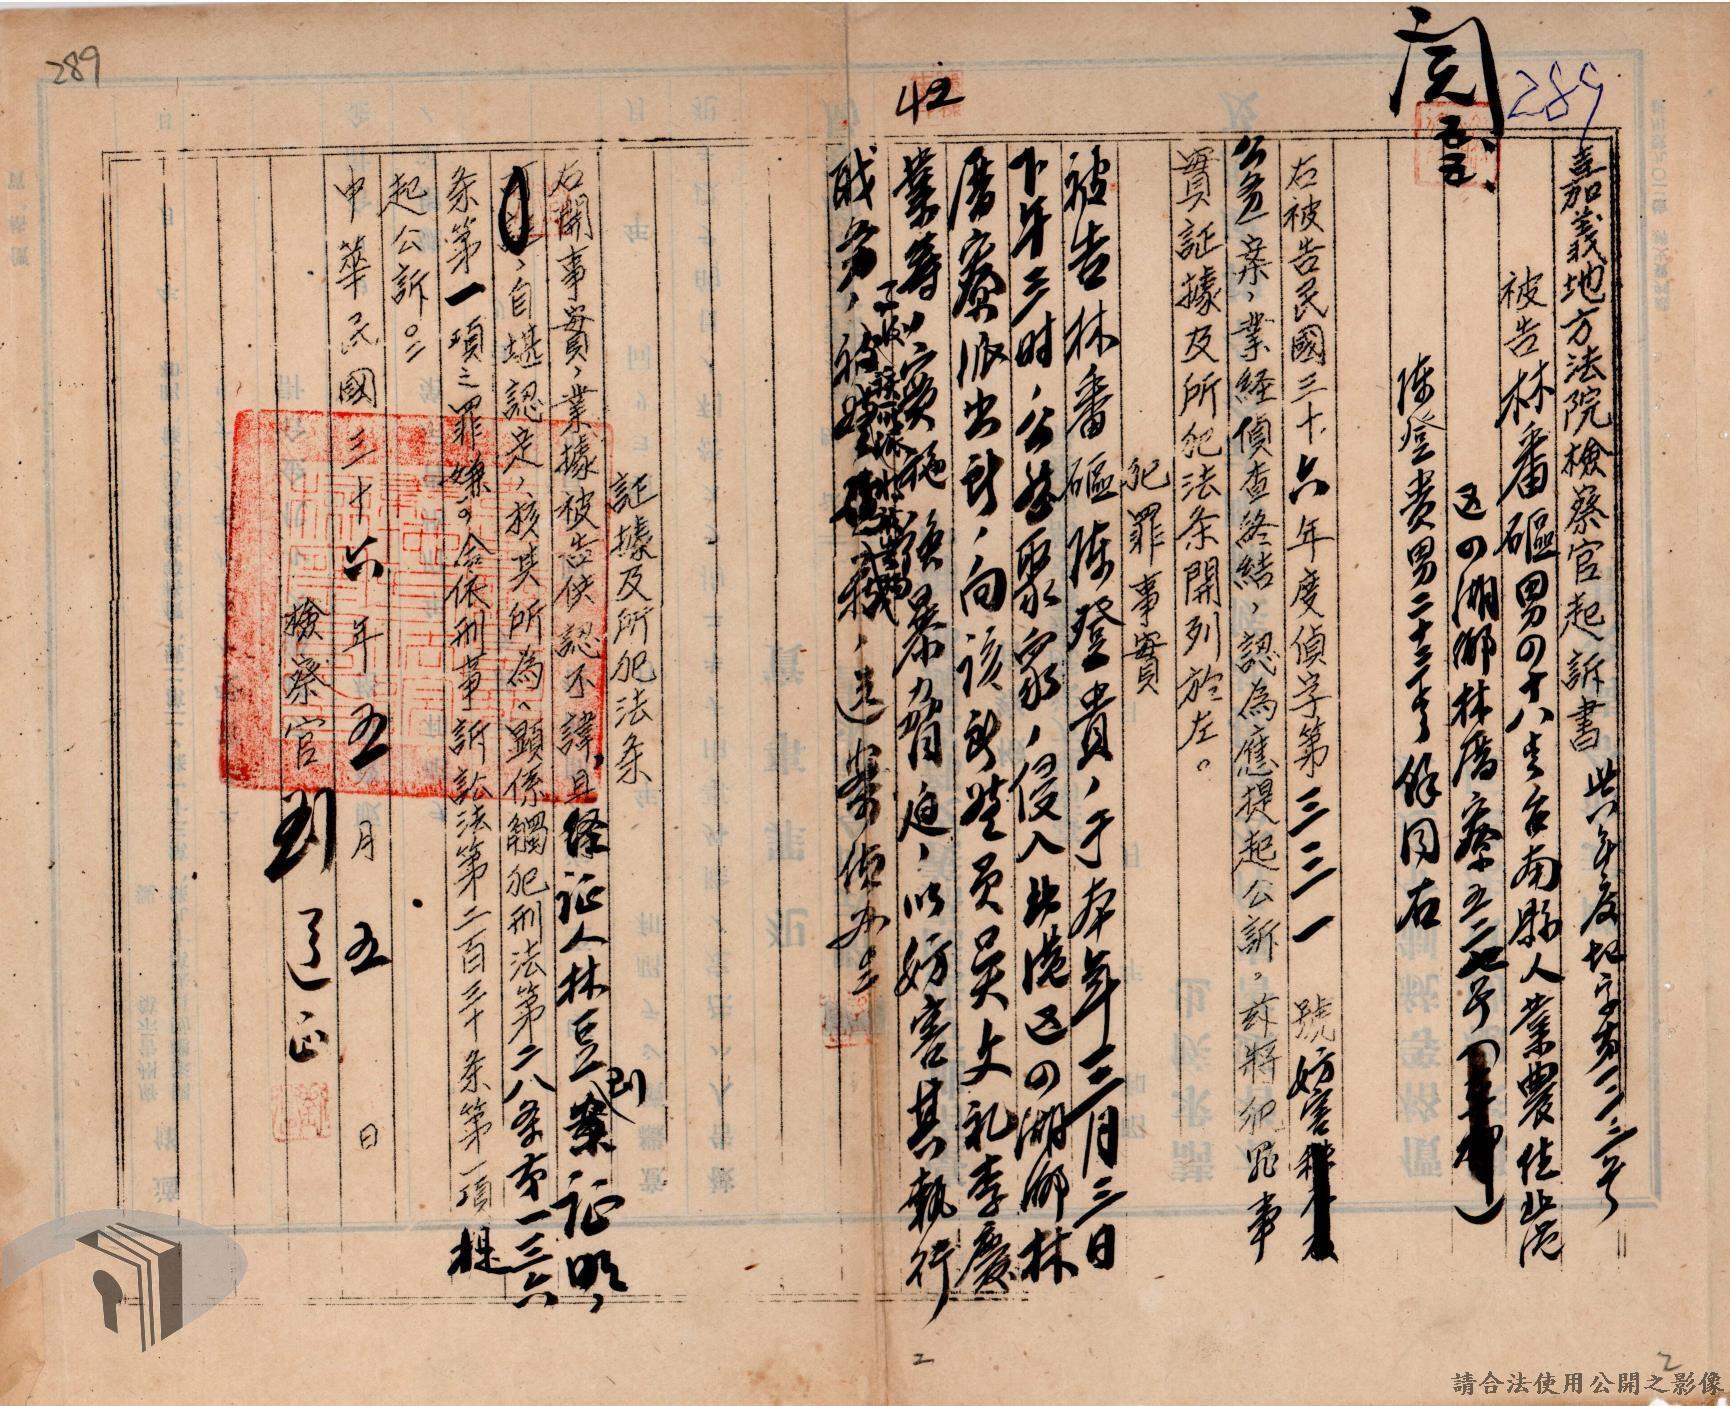 289
閱
289
嘉義地方法院檢察官起訴書 卅六年度起字第一三三号
被告林番𥕥男四十八才台南縣人業農住北港
区四湖鄉林厝寮五二
陳登貴男二十三才 餘同右
右被告民國三十六年度偵字第三三一號妨害
公務案，業経偵查終結，認為應提起公訴。茲將犯罪事
實証據及所犯法条開列於左。
犯罪事實
被告林番𥕥陳登貴，于本年三月三日
下午三时，公然聚眾，侵入北港区四湖鄉林
厝寮派出所，向該所警員吳文礼李慶
業等，實施強暴脅迫，以妨害其執行
职务，
送案偵办
42
証據及所犯法条
右開事實，業據被告供認不諱，且経証人林豆
証明，
，自堪認定，核其所為。顯係觸犯刑法第一三六
条第一項之罪嫌。合依刑事訴訟法第二百三十条第一項提
起公訴。
中華民國三十六年五月五日
檢察官 劉
2
2
請合法使用公開之影像